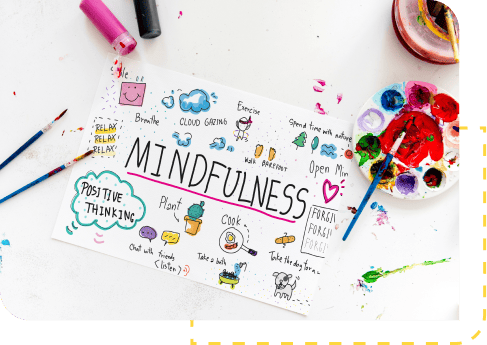 Breathe
CLOUD GAZING
Exercise
Spend time with nature
RELAX
RELAX
RELAX
Walk BAREFOOT
Open
MINDFULNESS
POSITIVE
THINKING
Plant
Cook
FORGI
FORGI
FORGI
Chat with friends
(listen)
Take a bath
Take the dog for a